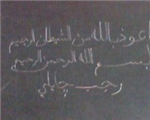 اعوذ بالله من الشيطان الرجيم
بسم الله الرحمن الرحيم
رجب